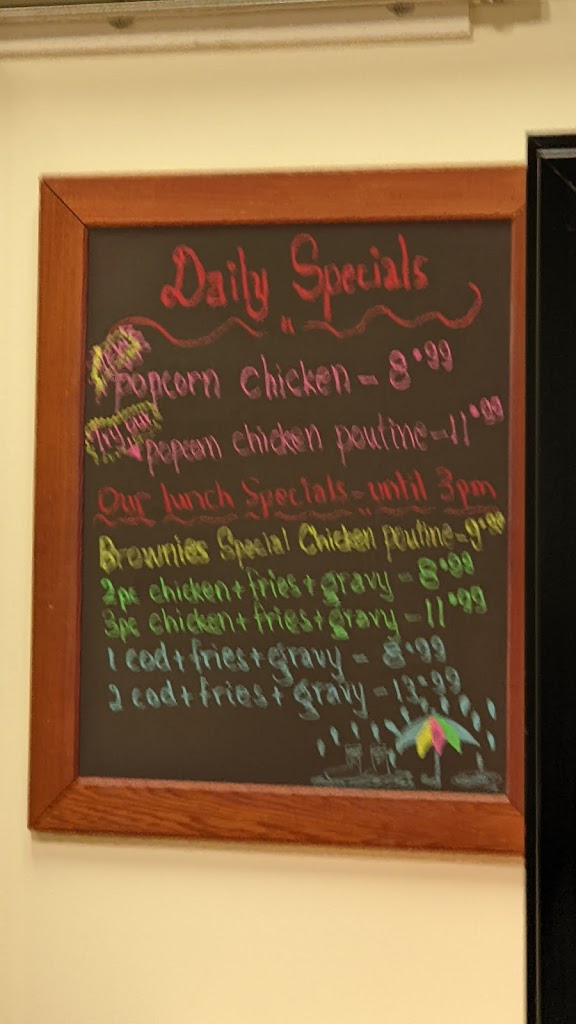 Daily Specials
popcorn chicken - 8.99
Try our
popcorn chicken poutine - 11.99
Our lunch Specials - until 3pm
Brownies Special Chicken poutine - 9.99
2pc chicken + fries + gravy - 8.99
3pc chicken + fries + gravy - 11.99
1 cod + fries + gravy = 8.99
2 cod + fries + gravy - 13.99